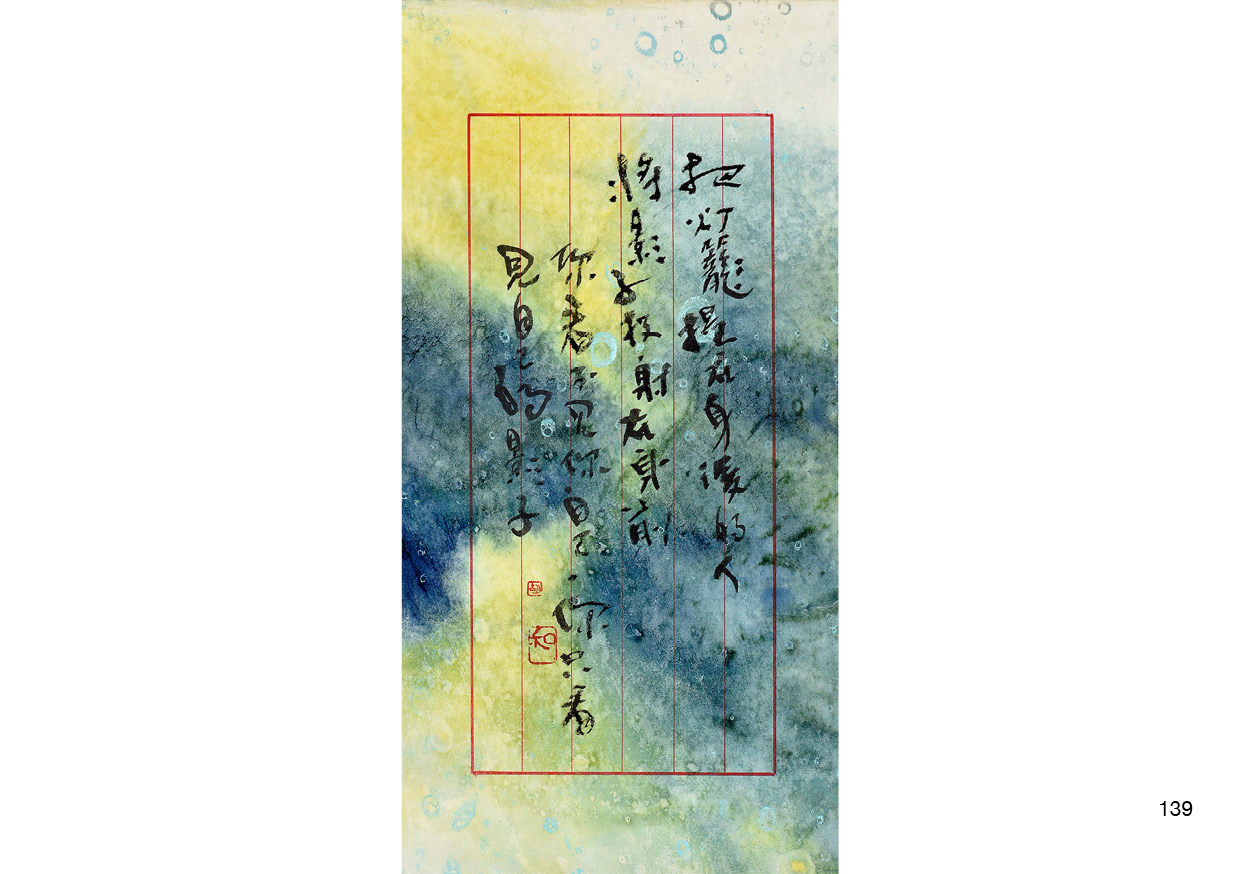 把灯籠提在身後的人
將影子投射在身前
你看不見你自己，你只看
見自己的影子
知
139